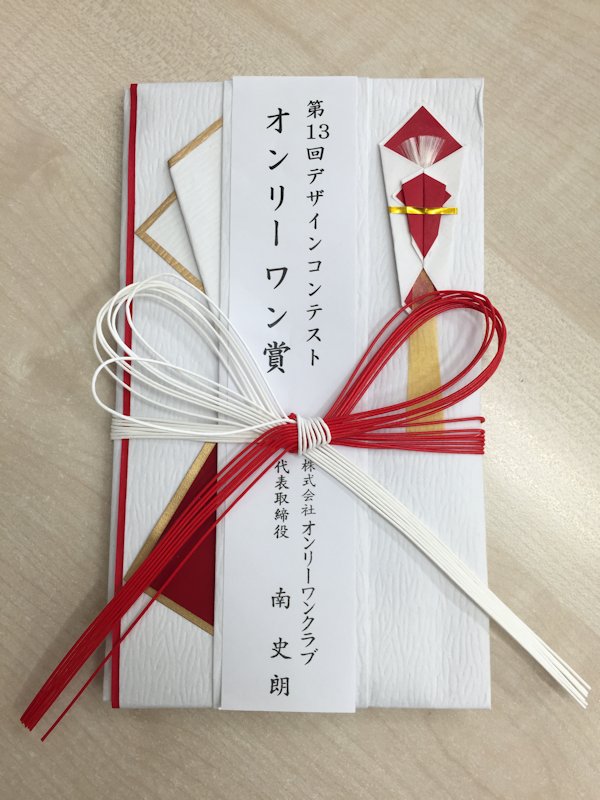 第13回デザインコンテスト
オンリーワン賞
株式会社オンリーワンクラブ
代表取締役 南史朗